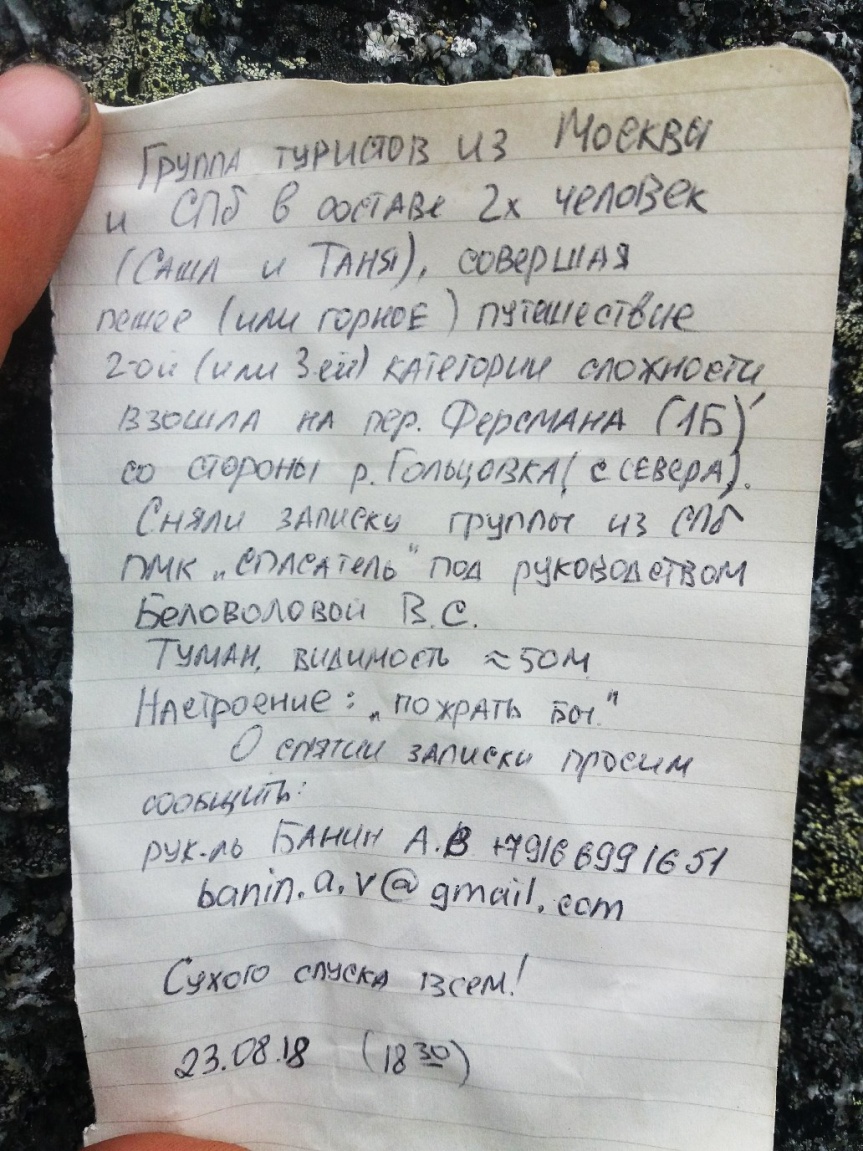 Группа туристов из Москвы
и СПб в составе 2х человек
(Саша и Таня), совершая
пешее (или горное) путешествие
2-ой (или 3ей) категории сложности,
взошла на пер. Ферсмана (1Б)
со стороны р. Гольцовка (с севера).
Сняли записку группы из СПб
ПМК „Спасатель" под руководством
Беловоловой В.С.
Туман, видимость ≈50м
Настроение: „пожрать бы."
О снятии записки просим
сообщить:
рук-ль Банин А.В +79166991651
banin.a.v@gmail.com
Сухого спуска всем!
23.08.18 (18 30)